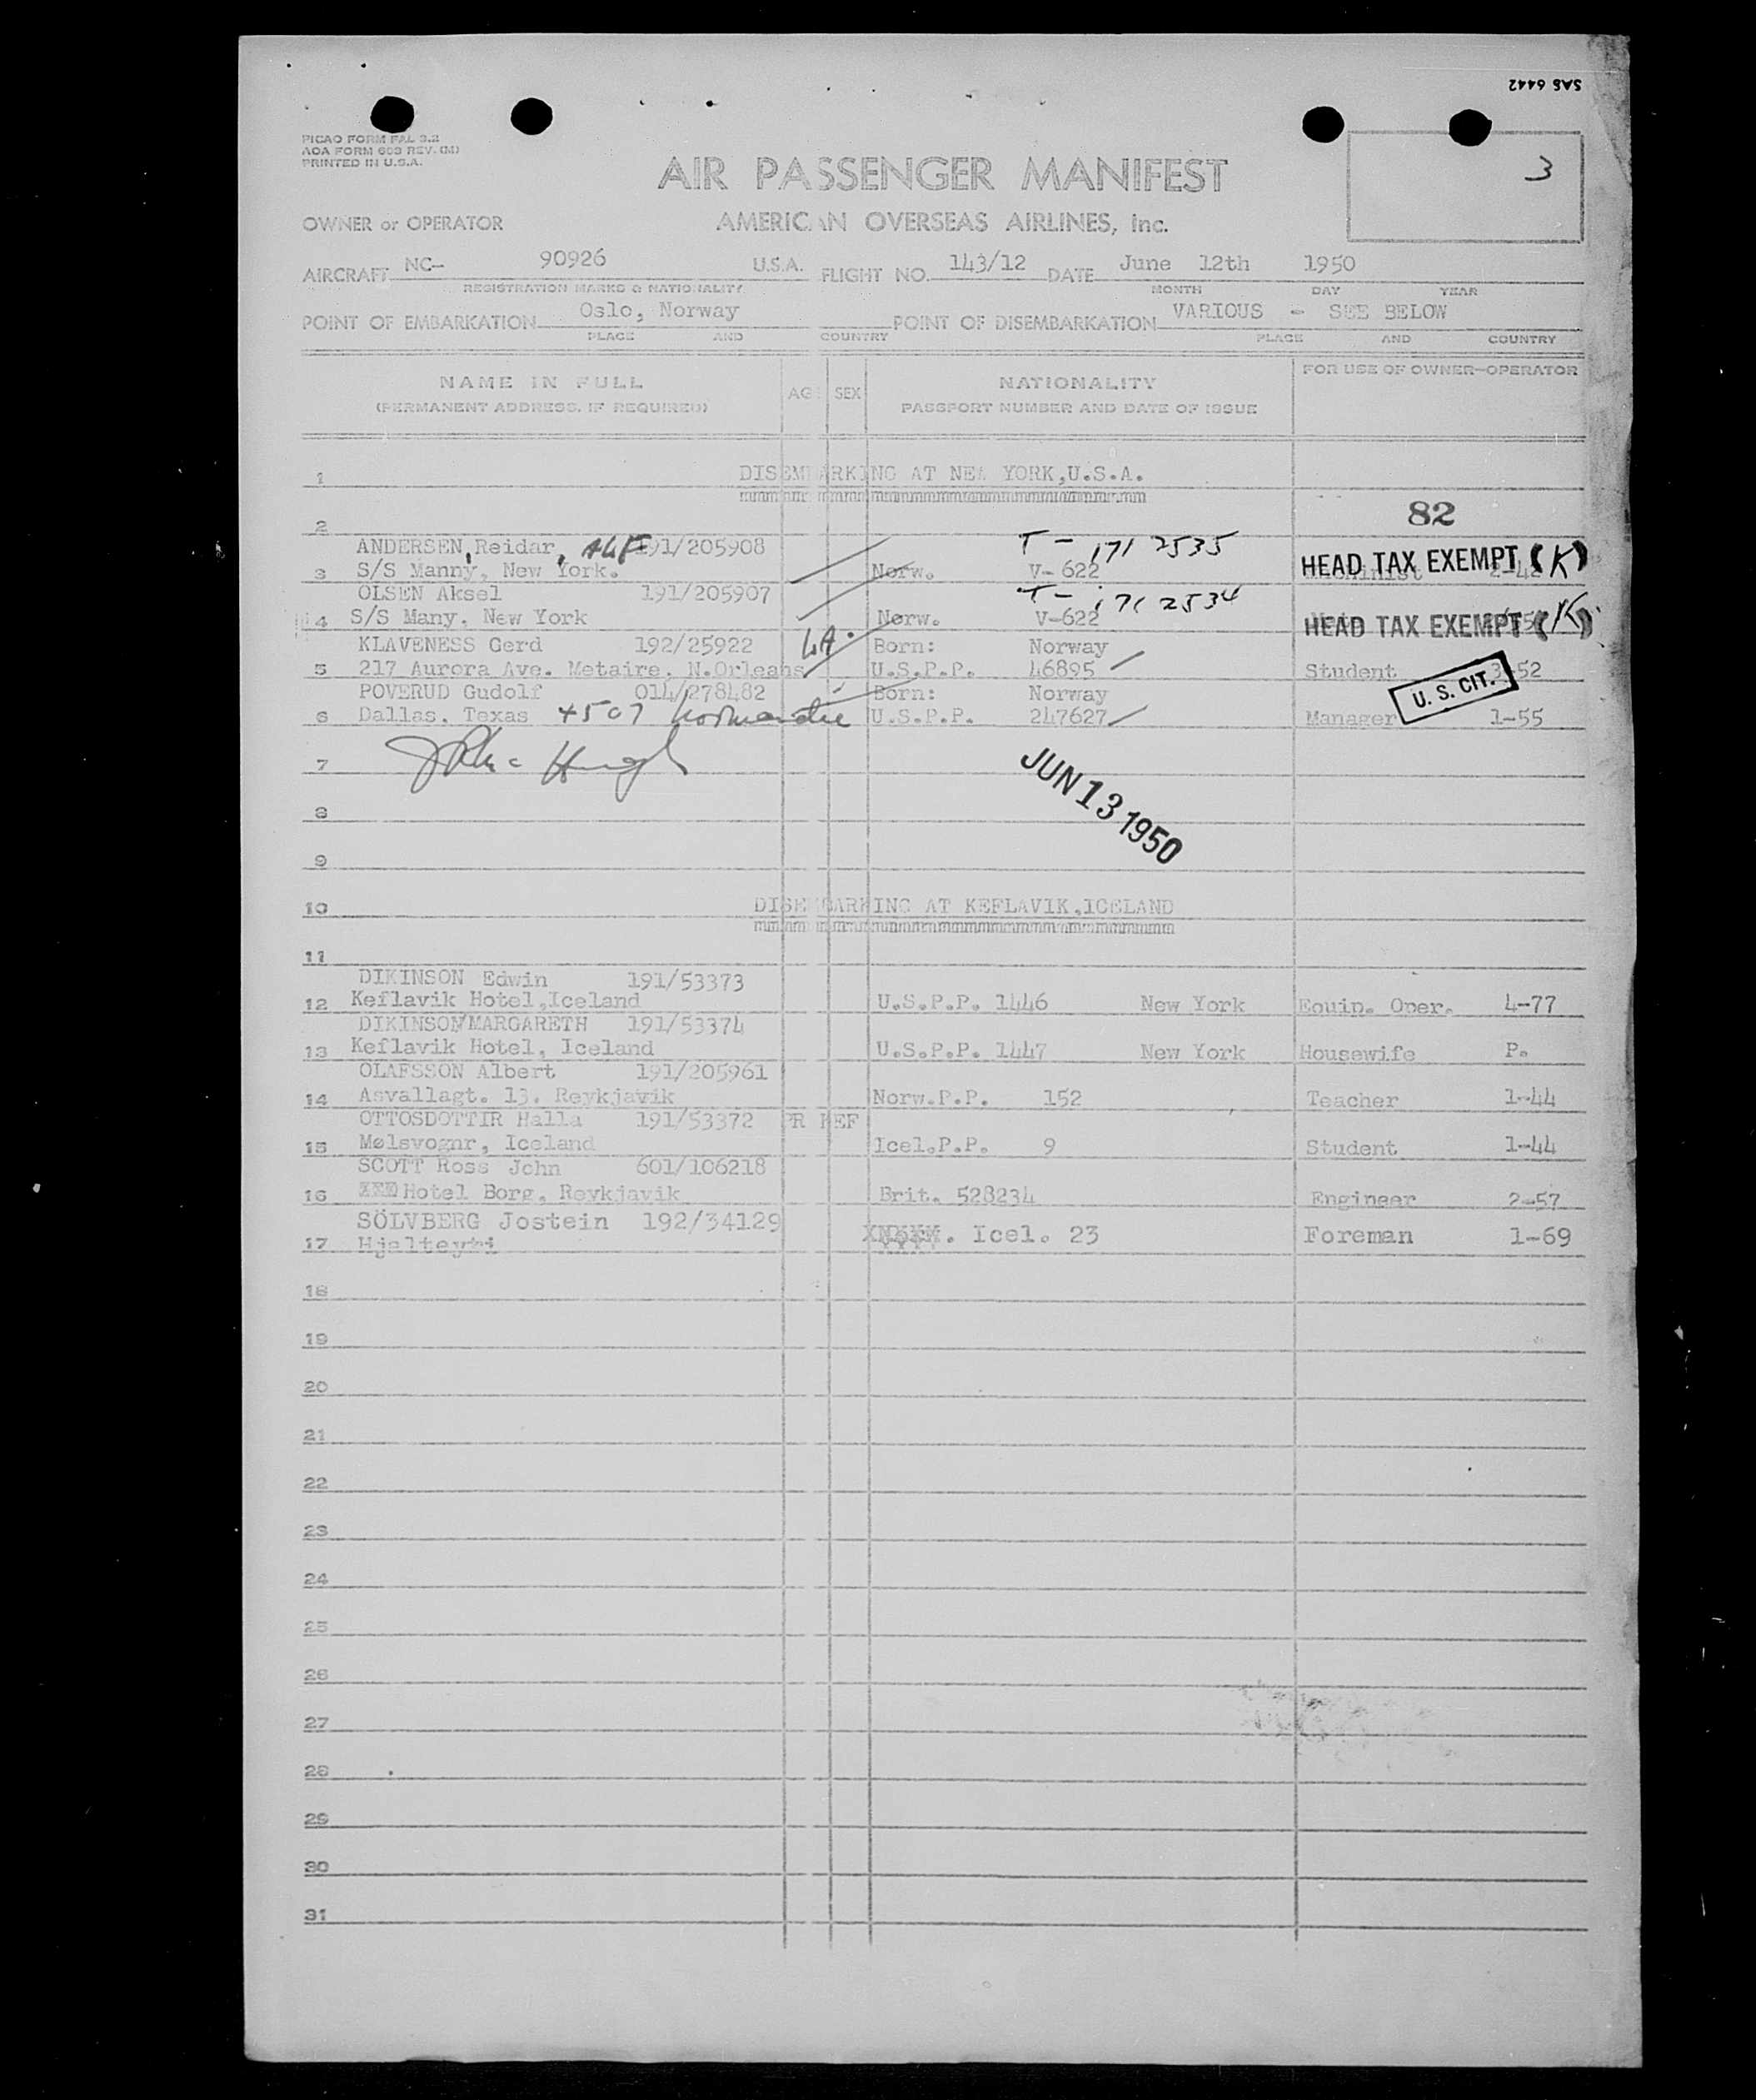 SAS 6442
PICAO FORM FAL 3.2
AOA FORM 603 REV. (M)
PRINTED IN U.S.A.
3
AIR PASSENGER MANIFEST
OWNER or OPERATOR AMERICAN OVERSEAS AIRLINES, Inc.
AIRCRAFT NC- 90926 U.S.A. FLIGHT NO. 143/12 DATE June 12th 1950
REGISTRATION MARKS & NATIONALITY MONTH DAY YEAR
POINT OF EMBARKATION Oslo, Norway POINT OF DISEMBARKATION VARIOUS - SEE BELOW
PLACE AND COUNTRY PLACE AND COUNTRY
NAME IN FULL AGE SEX NATIONALITY FOR USE OF OWNER-OPERATOR
(PERMANENT ADDRESS, IF REQUIRED) PASSPORT NUMBER AND DATE OF ISSUE
1 DISEMBARKING AT NEW YORK,U.S.A.
82
2
ANDERSEN, Reidar, ALF 191/205908 T-1712535
3 S/S Manny, New York. Norw. V-622 HEAD TAX EXEMPT (K)
OLSEN Aksel 191/205907 T-1712534
4 S/S Many, New York Norw. V-622 HEAD TAX EXEMPT (K)
KLAVENESS Gerd 192/25922 LA. Born: Norway
5 217 Aurora Ave. Metaire, N.Orleans U.S.P.P. 46895 Student 3-52
POVERUD Gudolf 014/278482 Born: Norway U. S. CIT.
6 Dallas, Texas 4507 Normandie U.S.P.P. 247627 Manager 1-55
7
JUN 13 1950
8
9
10 DISEMBARKING AT KEFLAVIK,ICELAND
11
DIKINSON Edwin 191/53373
12 Keflavik Hotel,Iceland U.S.P.P. 1446 New York Equip. Oper. 4-77
DIKINSON MARGARETH 191/53374
13 Keflavik Hotel, Iceland U.S.P.P. 1447 New York Housewife P.
OLAFSSON Albert 191/205961
14 Asvallagt. 13, Reykjavik Norw.P.P. 152 Teacher 1-44
OTTOSDOTTIR Halla 191/53372 PR KEF
15 Mølsvognr, Iceland Icel.P.P. 9 Student 1-44
SCOTT Ross John 601/106218
16 Hotel Borg, Reykjavik Brit. 528234 Engineer 2-57
SÖLVBERG Jostein 192/34129 Icel. 23 Foreman 1-69
17 Hjalteyri
18
19
20
21
22
23
24
25
26
27
28
29
30
31